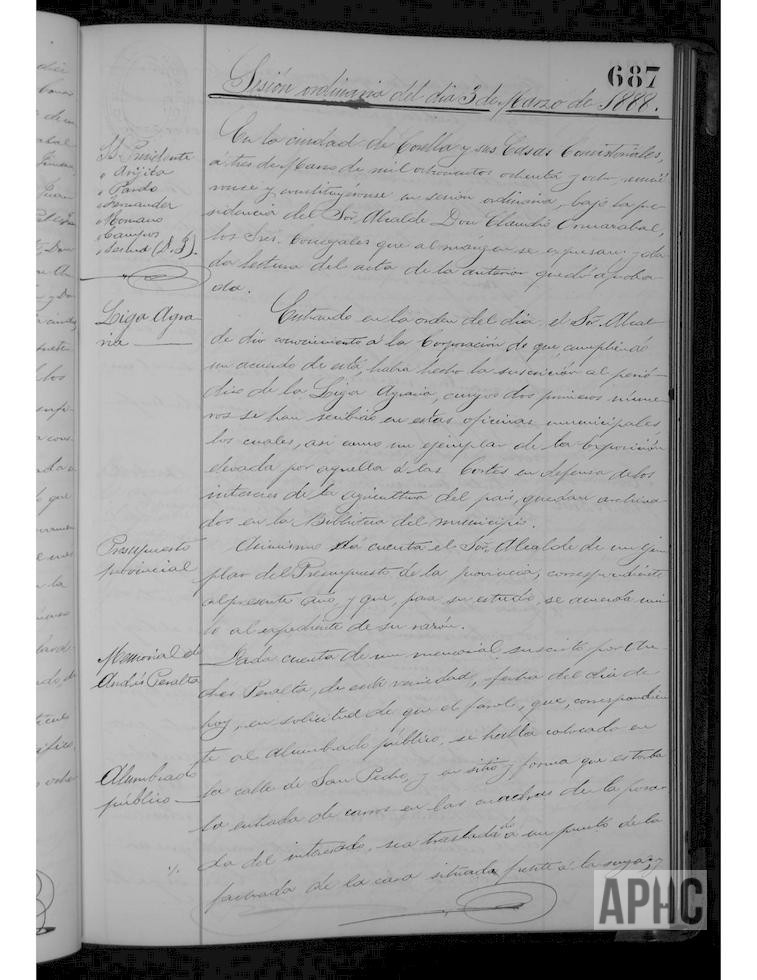 687
Sesión ordinaria del dia 3 de Marzo de 1888.
Sr. Presidente
" Anjita
" Pardo
" Fernandez
" Romano
" Campos
" Serna (D. J.)
En la ciudad de Corella y sus Casas Consistoriales,
a tres de Marzo de mil ochocientos ochenta y ocho, reunié
ronse y constituyéronse en sesión ordinaria, bajo la pre-
sidencia del Sor. Alcalde Don Claudio
los Sres. Concejales que al margen se expresan; y da-
da lectura del acta de la anterior quedó aproba-
da.
Liga Agra-
ria
Entrando en la orden del dia, el Sor. Alcal-
de dio conocimiento á la Corporación de que cumpliendo
un acuerdo de esta, habia hecho la suscrición al perió-
dico de la Liga Agraria, cuyos dos primeros núme-
ros se han recibido en estas oficinas municipales
los cuales, asi como un ejemplar de la Exposición
elevada por aquella á las Cortes en defensa de los
intereses de la agricultura del pais, quedan archiva-
dos en la Biblioteca del municipio.
Presupuesto
provincial
Asimismo dá cuenta el Sor. Alcalde de un ejem-
plar del Presupuesto de la provincia, correspondiente
al presente año, y que, para su estudio, se acuerda uni-
lo al expediente de su razón.
Memorial de
Andrés Peralta
Dada cuenta de un memorial suscrito por An-
drés Peralta, de esta vecindad, fecha del dia de
hoy, en solicitud de que el farol, que, correspondien-
te al alumbrado público, se halla colocado en
Alumbrado
público
la calle de San Pedro, y en sitio y forma que estorba
la entrada de carros en las de la posa-
da del interesado, sea trasladado á un punto de la
fachada de la casa situada frente á la suya; y
APHC